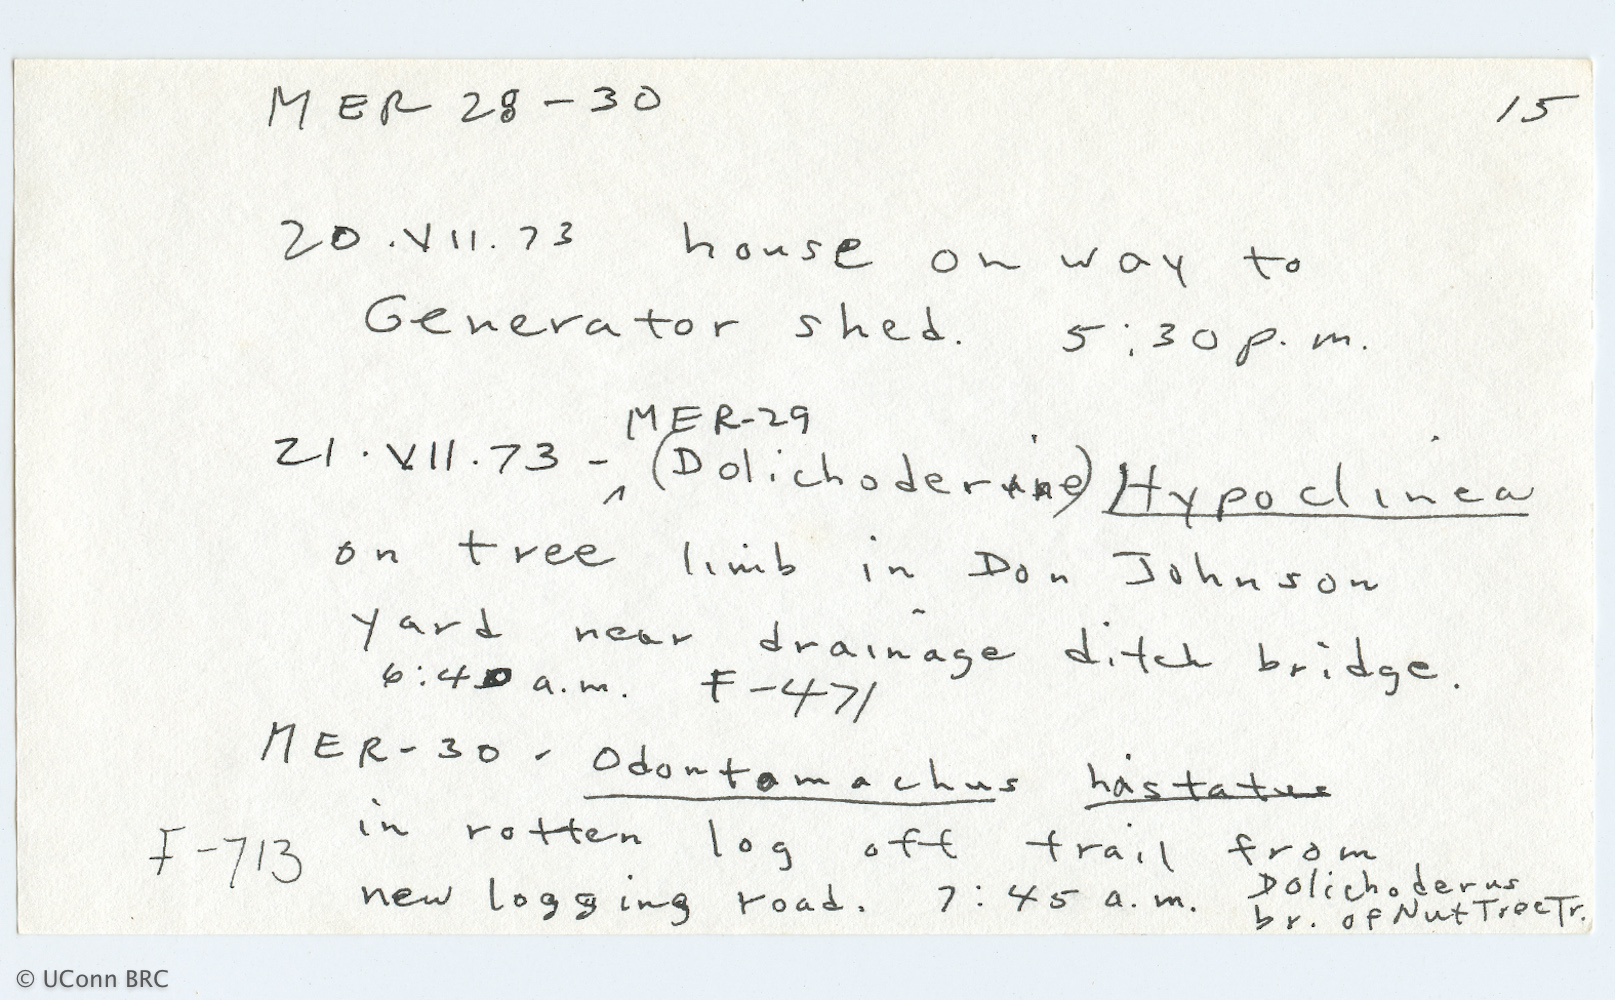 MER 28-30 15
20.VII.73 house on way to
Generator shed. 5:30 p.m.
MER-29
21.VII.73 - ^ (Dolichoderine) Hypoclinea
on tree limb in Don Johnson
yard near drainage ditch bridge.
6:40 a.m. F-471
MER-30 - Odontomachus hastatus
in rotten log off trail from
F-713
new logging road. 7:45 a.m. Dolichoderus
br. of Nut Tree Tr.
© UConn BRC